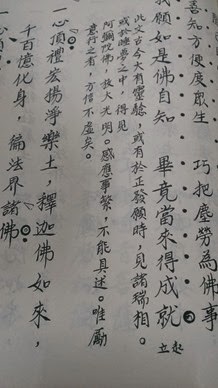 善知方便度眾生　巧把塵勞為佛事
我願如是佛自知　畢竟當來得成就
起立
此文古今大有靈驗，或有於正發願時，見諸瑞相。
或於睡夢之中，得見
阿彌陀佛，放大光明。感應事繁，不能具述。唯勵
意行之者，方信不虛矣。
一心頂禮宏揚淨樂土，釋迦佛如來，
千百億化身，徧法界諸佛。